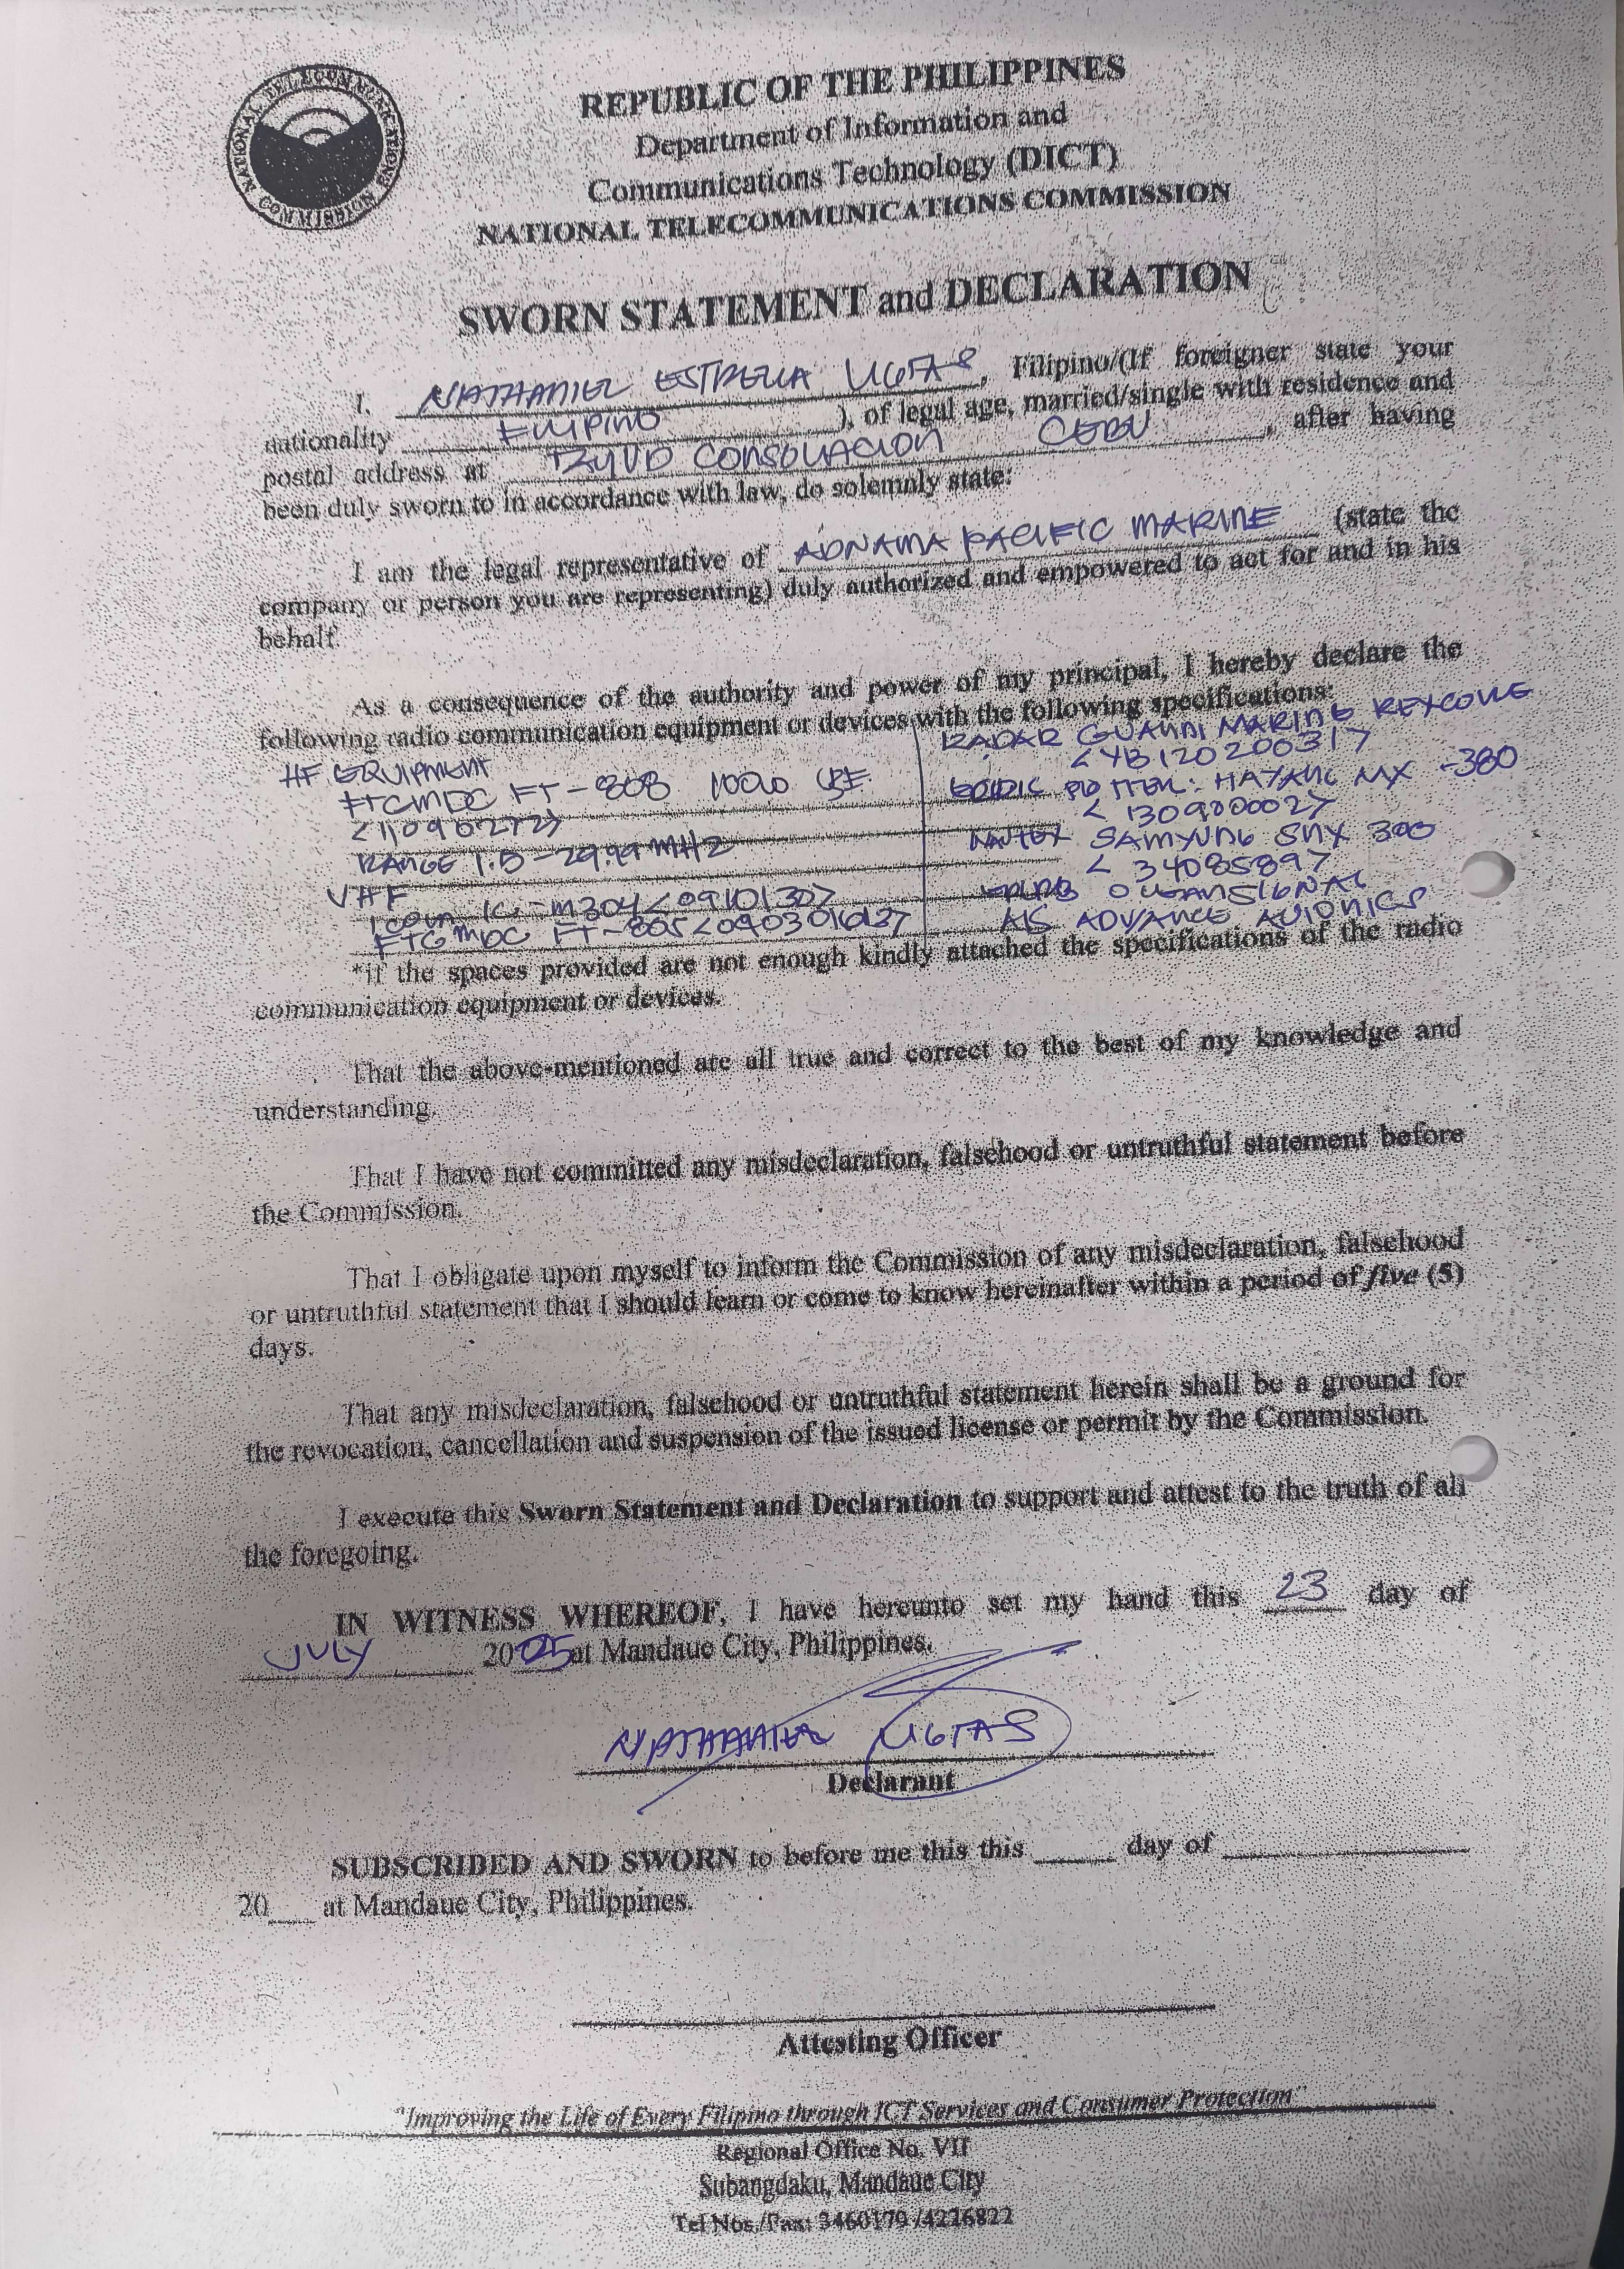 NATIONAL TELECOMMUNICATIONS COMMISSION
REPUBLIC OF THE PHILIPPINES
Department of Information and
Communications Technology (DICT)
NATIONAL TELECOMMUNICATIONS COMMISSION
SWORN STATEMENT and DECLARATION
I, NATHANIEL ESTRELLA UGTAS, Filipino/(If foreigner state your
nationality FILIPINO ), of legal age, married/single with residence and
postal address at TAYUD CONSOLACION CEBU, after having
been duly sworn to in accordance with law, do solemnly state:
I am the legal representative of ADNAMA PACIFIC MARINE (state the
company or person you are representing) duly authorized and empowered to act for and in his
behalf.
As a consequence of the authority and power of my principal, I hereby declare the
following radio communication equipment or devices with the following specifications:
HF EQUIPMENT
FT-808
RANGE 1.5-29.99 MHz
VHF
ICOM IC-M304 <0910130>
FT-805
RADAR MARINE
<YB120200317
MX-380
< 130900002>
NAVTEX SAMYUNG SNX 300
< 34085897
AIS ADVANCE AVIONICS
*if the spaces provided are not enough kindly attached the specifications of the radio
communication equipment or devices.
That the above-mentioned are all true and correct to the best of my knowledge and
understanding.
That I have not committed any misdeclaration, falsehood or untruthful statement before
the Commission.
That I obligate upon myself to inform the Commission of any misdeclaration, falsehood
or untruthful statement that I should learn or come to know hereinafter within a period of five (5)
days.
That any misdeclaration, falsehood or untruthful statement herein shall be a ground for
the revocation, cancellation and suspension of the issued license or permit by the Commission.
I execute this Sworn Statement and Declaration to support and attest to the truth of all
the foregoing.
IN WITNESS WHEREOF, I have hereunto set my hand this 23 day of
JULY 2025 at Mandaue City, Philippines.
NATHANIEL UGTAS
Declarant
SUBSCRIBED AND SWORN to before me this this ____ day of ____
20__ at Mandaue City, Philippines.
Attesting Officer
"Improving the Life of Every Filipino through ICT Services and Consumer Protection"
Regional Office No. VII
Subangdaku, Mandaue City
Tel Nos./Fax: 3460179 /4226822